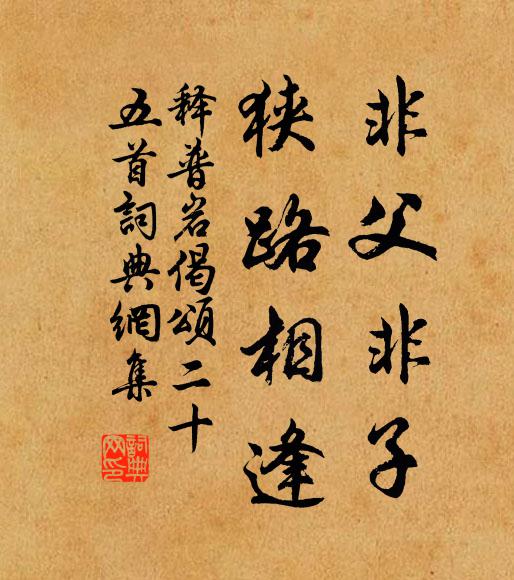 非父非子
狭路相逢
释普岩偈頌二十
五首詞典網集
詞典网印